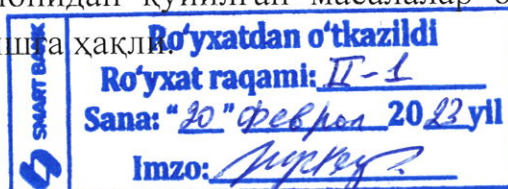 қўйилган масалалар
ҳақли.
SMART BANK
Ro'yxatdan o'tkazildi
Ro'yxat raqami: II-1
Sana: "20" феврал 2023 yil
Imzo: